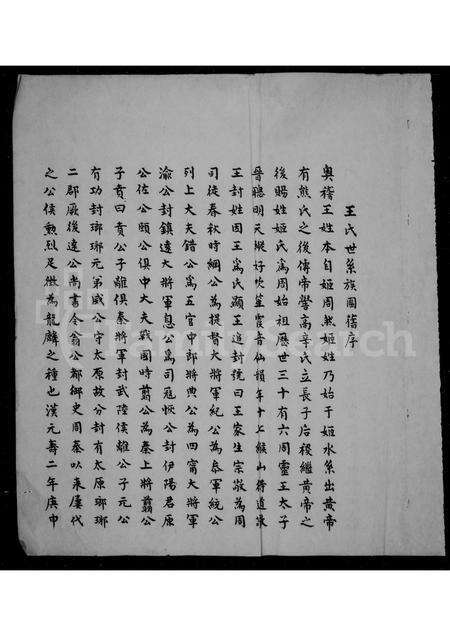 王氏世系族圖舊序
奥稽王姓本自姬周然姬姓乃始于姬水系出黄帝
有熊氏之後傳帝嚳高辛氏立長子后稷繼黄帝之
後賜姓姬氏爲周始祖歷世三十有六周靈王太子
晉聰明天縱好吹笙
王封姓因王爲氏顯王追封號曰王家生宗敬為周
司徒春秋時綱公爲提督大將軍紀公為㕘軍統公
列上大夫錯公爲五官中郎將典公為四甯大將軍
渝公封鎮遠大將軍息公爲司冦恢公封伊陽君原
公佐公頤公俱中大夫戰國時翦公為秦上將翦公
子賁曰賁公子離俱秦將軍封武陸侯離公子元公
有功封瑯琊元弟威公守太原故分封有太原瑯琊
二郡厥後遠公尚書令翁公都鄉史周秦以來屢代
之公侯勲烈足徵為龍麟之種也漢元壽二年庚申